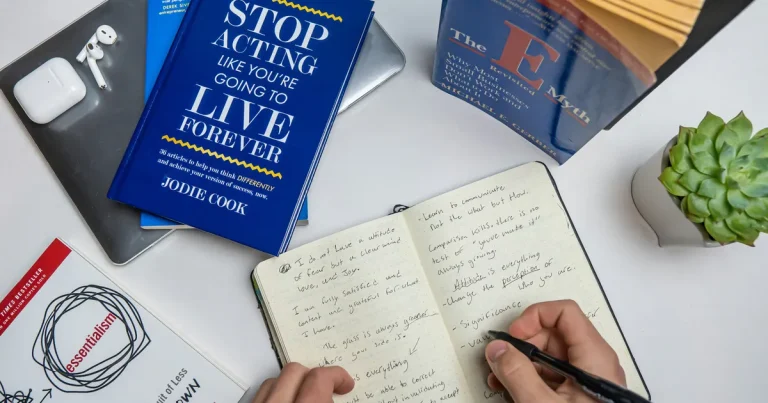 DEREK SIV
STOP
ACTING
LIKE YOU'RE
GOING TO
LIVE
FOREVER
36 articles to help you think DIFFERENTLY
and achieve your version of success, now.
JODIE COOK
The E Myth
Revisited
Why Most
Small Businesses
Don't Work and
What to Do
About It
MICHAEL E. GERBER
TIMES BESTSELLER
essentialism
suit of Less
OWN
I do not have a attitude
of fear but a clear mind
love, and Joy.
I am fully satisfied and
content and grateful for what
I have.
The grass is always greener
where your side is.
is everything
be able to correct
invalidating
to accept
- Learn to communicate
Not the what but How.
Comparison kills, there is no
test of "you've made it"
always growing.
Attitude is everything
- Change the perception of
who you are.
- Significance